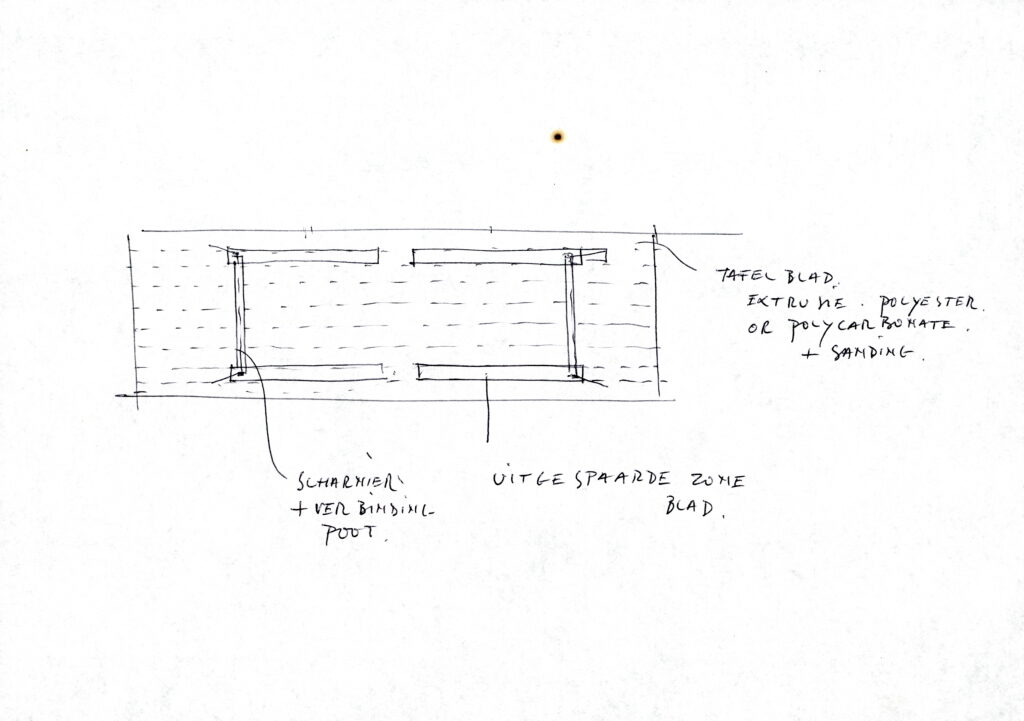 TAFEL BLAD.
EXTRUSIE. POLYESTER.
OR POLYCARBONATE.
+ SANDING.
SCHARNIER
+ VERBINDING
POOT.
UITGESPAARDE ZONE
BLAD.